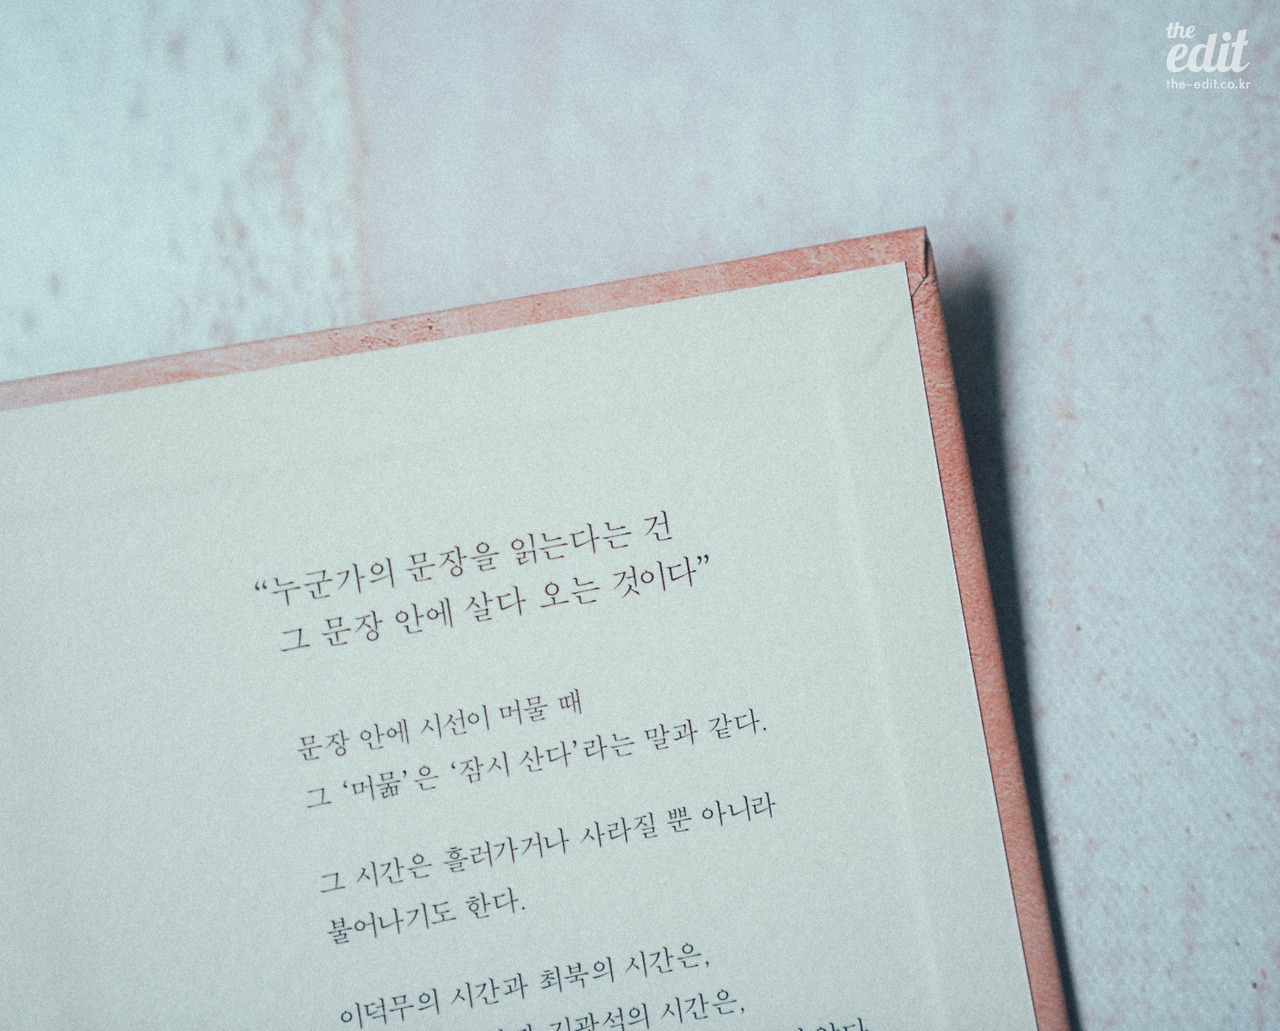 the
edit
the-edit.co.kr
“누군가의 문장을 읽는다는 건
그 문장 안에 살다 오는 것이다”
문장 안에 시선이 머물 때
그 ‘머묾’은 ‘잠시 산다’라는 말과 같다.
그 시간은 흘러가거나 사라질 뿐 아니라
불어나기도 한다.
이덕무의 시간과 최북의 시간은,
김광석의 시간은,